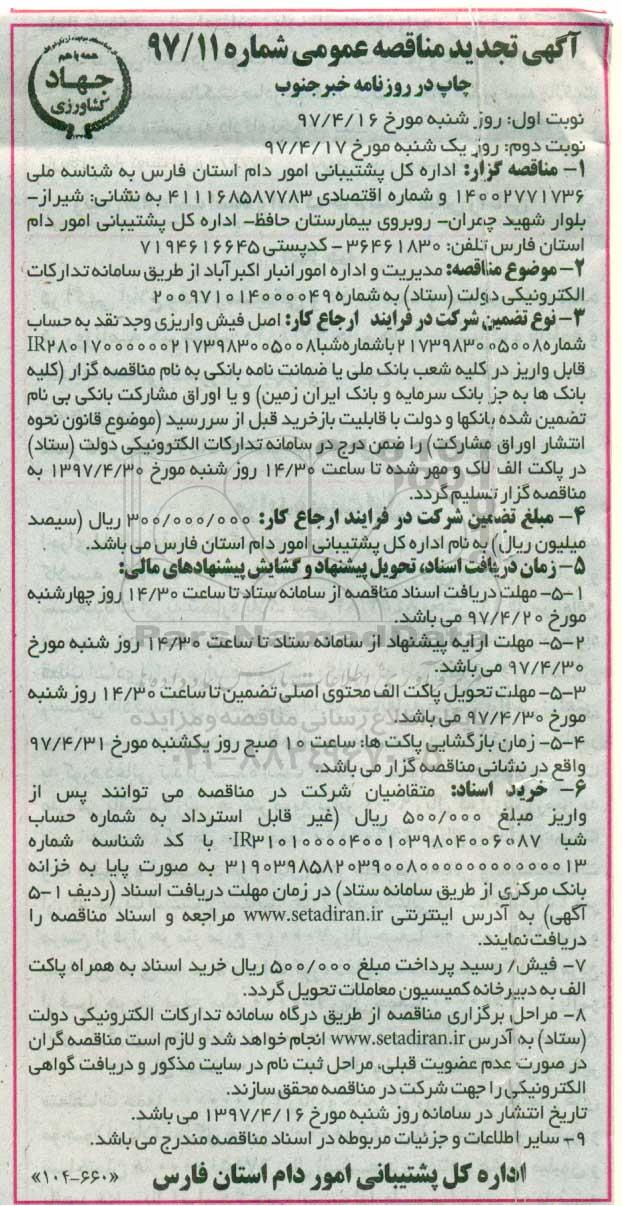 آگهی تجدید مناقصه عمومی شماره ۹۷/۱۱
همه با هم
جهاد
کشاورزی
چاپ در روزنامه خبرجنوب
نوبت اول: روز شنبه مورخ ۹۷/۴/۱۶
نوبت دوم: روز یک شنبه مورخ ۹۷/۴/۱۷
۱- مناقصه گزار: اداره کل پشتیبانی امور دام استان فارس به شناسه ملی
۱۴۰۰۲۷۷۱۷۳۶ و شماره اقتصادی ۴۱۱۱۶۸۵۸۷۷۸۳ به نشانی: شیراز-
بلوار شهید چمران- روبروی بیمارستان حافظ- اداره کل پشتیبانی امور دام
استان فارس تلفن: ۳۶۴۶۱۸۳۰- کدپستی ۷۱۹۴۶۱۶۶۴۵
۲- موضوع مناقصه: مدیریت و اداره امور انبار اکبرآباد از طریق سامانه تدارکات
الکترونیکی دولت (ستاد) به شماره ۲۰۰۹۷۱۰۱۴۰۰۰۰۴۹
۳- نوع تضمین شرکت در فرایند ارجاع کار: اصل فیش واریزی وجه نقد به حساب
شماره ۲۱۷۳۹۸۳۰۰۵۰۰۸ با شماره شبا IR۲۸۰۱۷۰۰۰۰۰۰۲۱۷۳۹۸۳۰۰۵۰۰۸
قابل واریز در کلیه شعب بانک ملی یا ضمانت نامه بانکی به نام مناقصه گزار (کلیه
بانک ها به جز بانک سرمایه و بانک ایران زمین) و یا اوراق مشارکت بانکی بی نام
تضمین شده بانکها و دولت با قابلیت بازخرید قبل از سررسید (موضوع قانون نحوه
انتشار اوراق مشارکت) را ضمن درج در سامانه تدارکات الکترونیکی دولت (ستاد)
در پاکت الف لاک و مهر شده تا ساعت ۱۴/۳۰ روز شنبه مورخ ۱۳۹۷/۴/۳۰ به
مناقصه گزار تسلیم گردد.
۴- مبلغ تضمین شرکت در فرایند ارجاع کار: ۳۰۰/۰۰۰/۰۰۰ ریال (سیصد
میلیون ریال) به نام اداره کل پشتیبانی امور دام استان فارس می باشد.
۵- زمان دریافت اسناد، تحویل پیشنهاد و گشایش پیشنهادهای مالی:
۵-۱- مهلت دریافت اسناد مناقصه از سامانه ستاد تا ساعت ۱۴/۳۰ روز چهارشنبه
مورخ ۹۷/۴/۲۰ می باشد.
۵-۲- مهلت ارایه پیشنهاد از سامانه ستاد تا ساعت ۱۴/۳۰ روز شنبه مورخ
۹۷/۴/۳۰ می باشد.
۵-۳- مهلت تحویل پاکت الف محتوی اصلی تضمین تا ساعت ۱۴/۳۰ روز شنبه
مورخ ۹۷/۴/۳۰ می باشد.
۵-۴- زمان بازگشایی پاکت ها: ساعت ۱۰ صبح روز یکشنبه مورخ ۹۷/۴/۳۱
واقع در نشانی مناقصه گزار می باشد.
۶- خرید اسناد: متقاضیان شرکت در مناقصه می توانند پس از
واریز مبلغ ۵۰۰/۰۰۰ ریال (غیر قابل استرداد به شماره حساب
شبا IR۳۱۰۱۰۰۰۰۴۰۰۱۰۳۹۸۰۴۰۰۶۰۸۷ با کد شناسه شماره
۳۱۹۰۳۹۸۵۸۲۰۳۹۰۰۸۰۰۰۰۰۰۰۰۰۰۰۰۱۳ به صورت پایا به خزانه
بانک مرکزی از طریق سامانه ستاد) در زمان مهلت دریافت اسناد (ردیف ۱-۵
آگهی) به آدرس اینترنتی www.setadiran.ir مراجعه و اسناد مناقصه را
دریافت نمایند.
۷- فیش/ رسید پرداخت مبلغ ۵۰۰/۰۰۰ ریال خرید اسناد به همراه پاکت
الف به دبیرخانه کمیسیون معاملات تحویل گردد.
۸- مراحل برگزاری مناقصه از طریق درگاه سامانه تدارکات الکترونیکی دولت
(ستاد) به آدرس www.setadiran.ir انجام خواهد شد و لازم است مناقصه گران
در صورت عدم عضویت قبلی، مراحل ثبت نام در سایت مذکور و دریافت گواهی
الکترونیکی را جهت شرکت در مناقصه محقق سازند.
تاریخ انتشار در سامانه روز شنبه مورخ ۱۳۹۷/۴/۱۶ می باشد.
۹- سایر اطلاعات و جزئیات مربوطه در اسناد مناقصه مندرج می باشد.
اداره کل پشتیبانی امور دام استان فارس
«۱۰۴-۶۶۰»